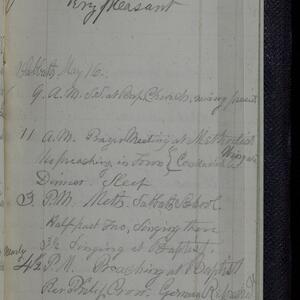 Very Pleasant
Sabbath, May 16.
9 A.M. S.S. at Bap. Church,
11 A.M. Prayer Meeting at Methodist
No preaching in Town
Dinner. Sleep
3 P.M. Meth. Sabbath School
Half past Two, Singing there
3½ Singing at Baptist.
4½ P.M. Preaching at Baptist
Rev Philip Crow. German